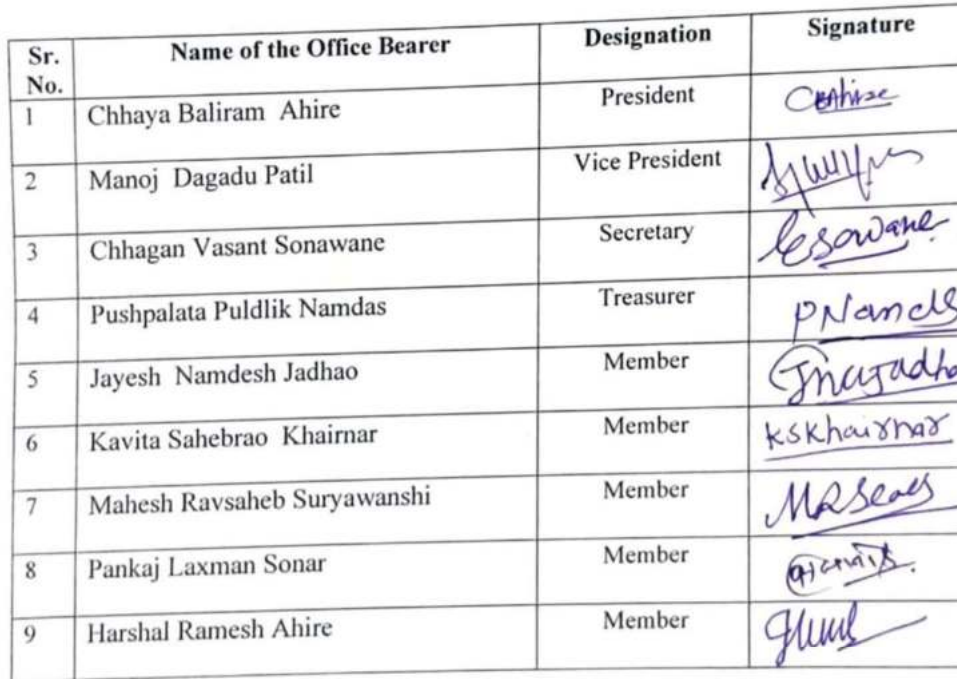 Sr. No. Name of the Office Bearer Designation Signature
1 Chhaya Baliram Ahire President CBAhire
2 Manoj Dagadu Patil Vice President
3 Chhagan Vasant Sonawane Secretary
4 Pushpalata Puldlik Namdas Treasurer
5 Jayesh Namdesh Jadhao Member
6 Kavita Sahebrao Khairnar Member KSKhairnar
7 Mahesh Ravsaheb Suryawanshi Member
8 Pankaj Laxman Sonar Member
9 Harshal Ramesh Ahire Member